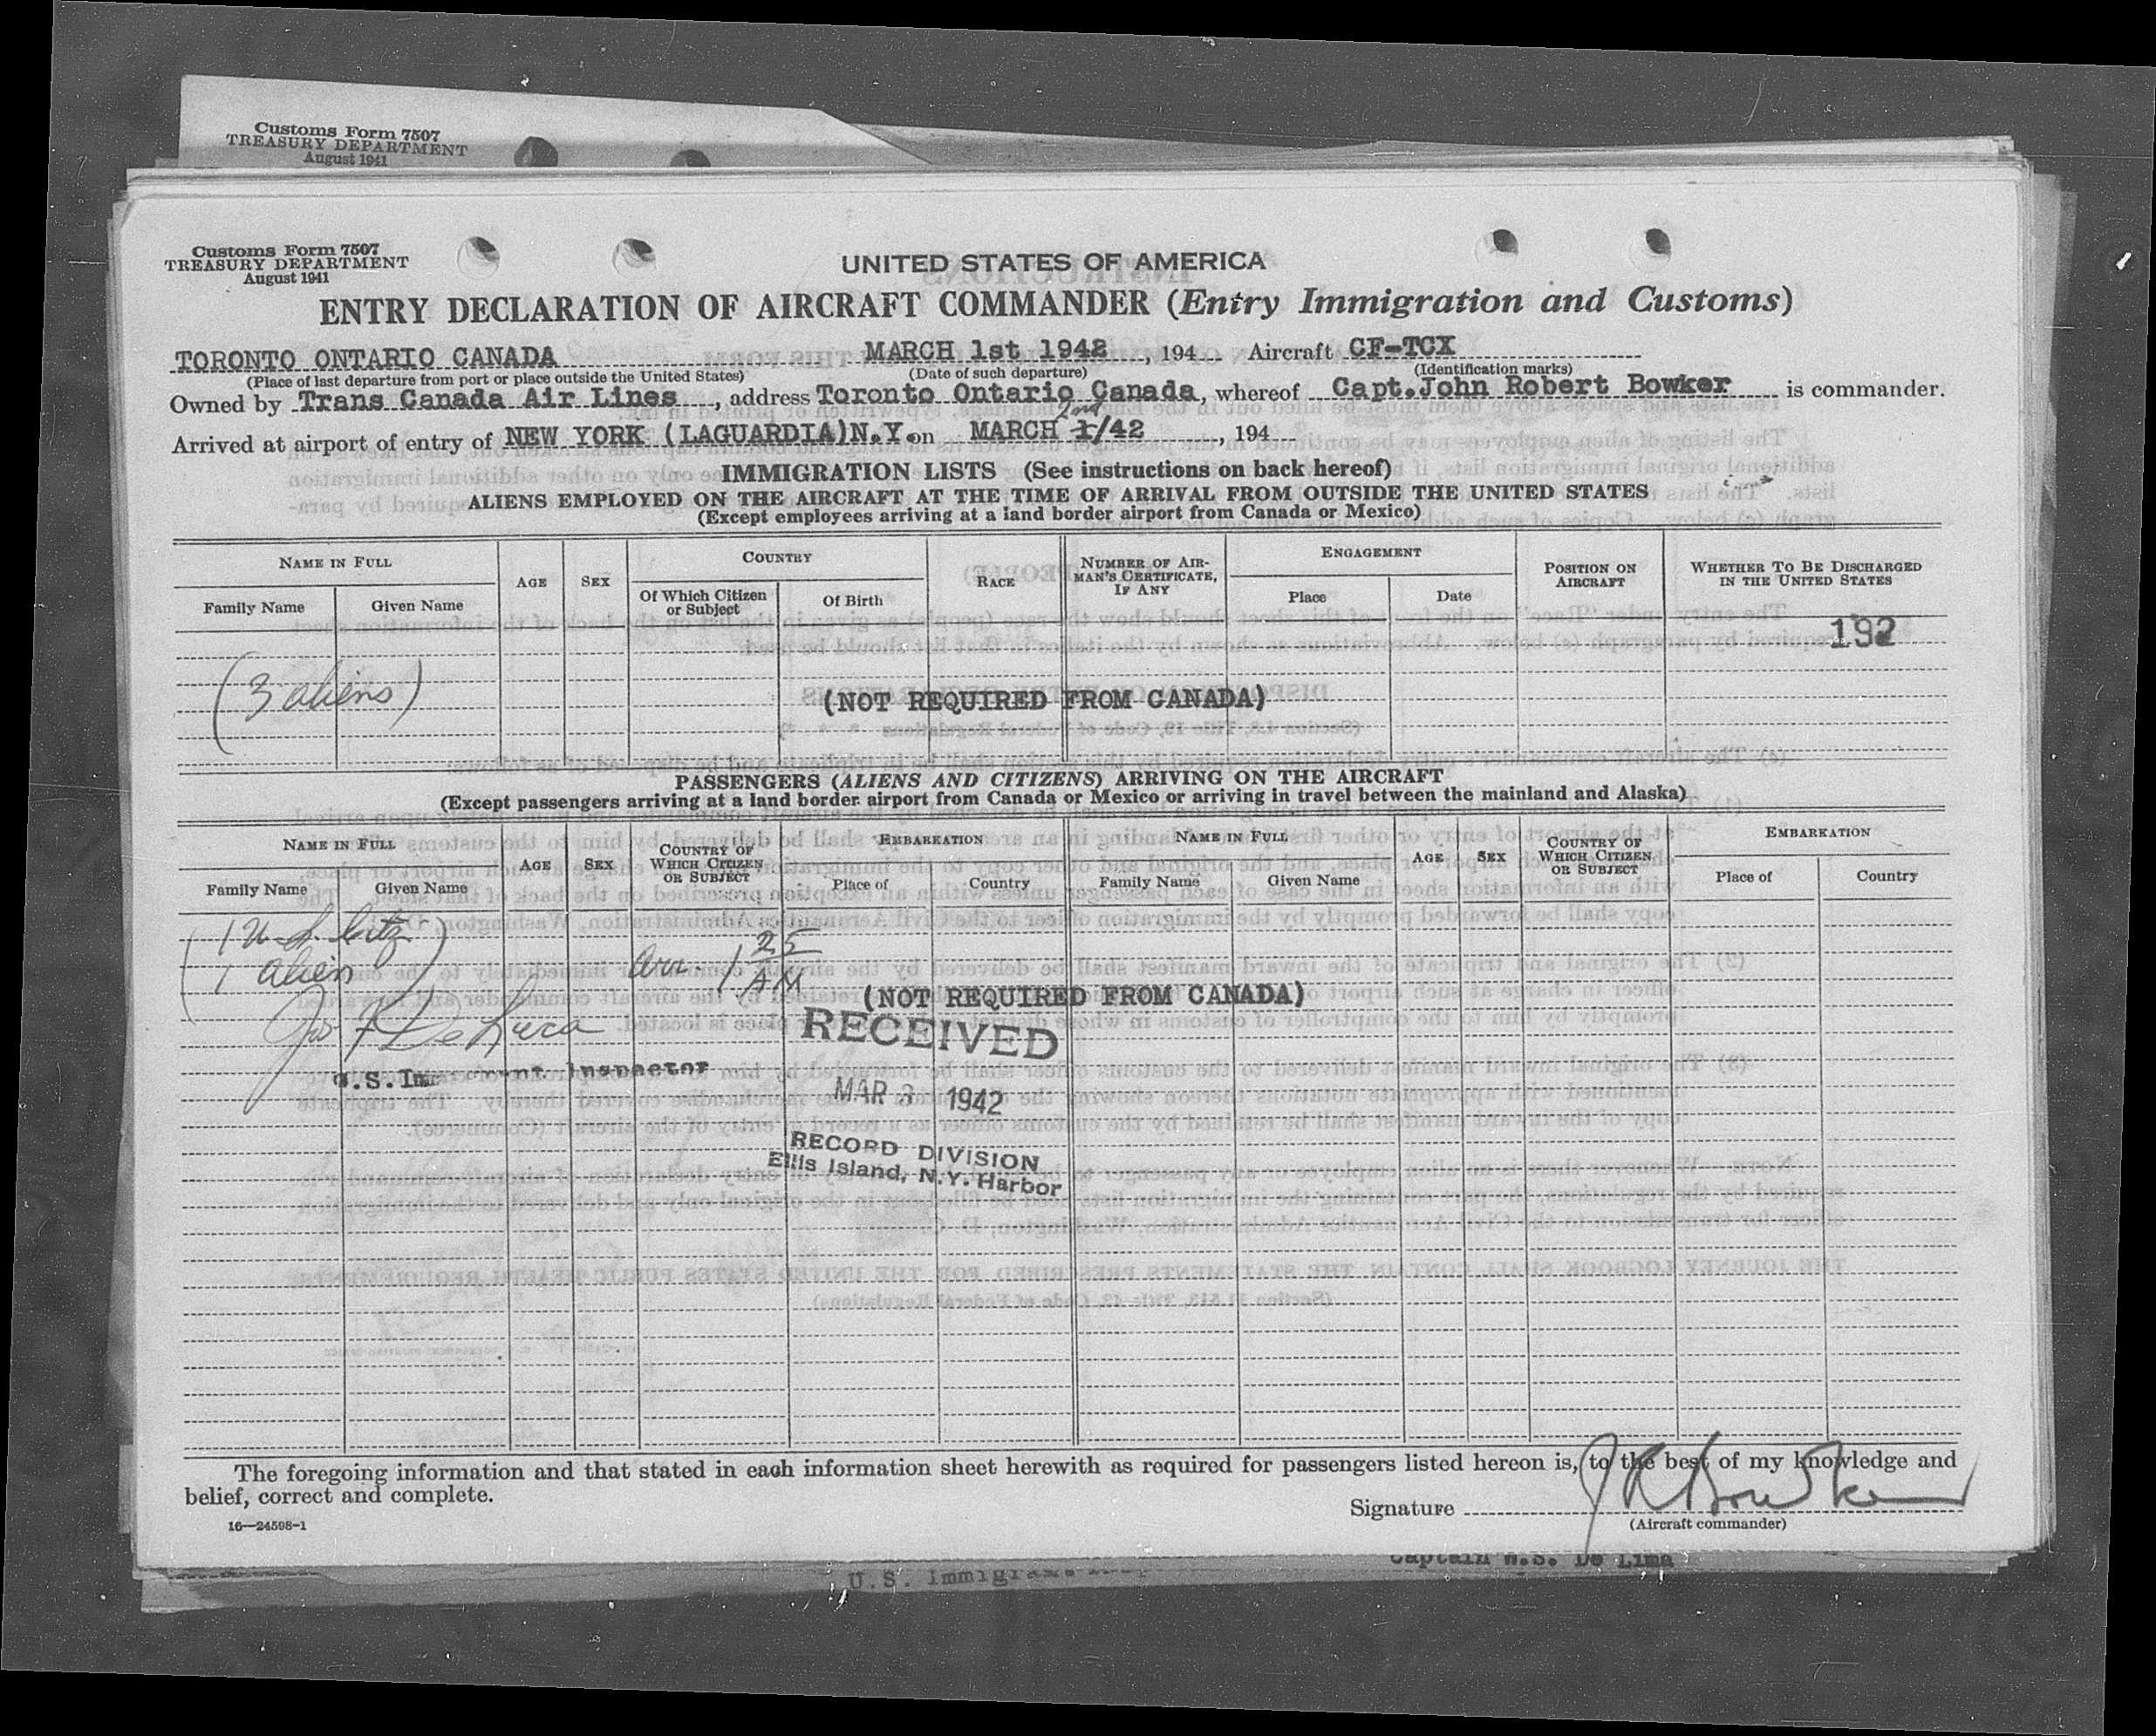 Customs Form 7507
TREASURY DEPARTMENT
August 1941
Customs Form 7507
TREASURY DEPARTMENT
August 1941
UNITED STATES OF AMERICA
ENTRY DECLARATION OF AIRCRAFT COMMANDER (Entry Immigration and Customs)
TORONTO ONTARIO CANADA MARCH 1st 1942, 194 Aircraft CF-TCX
(Place of last departure from port or place outside the United States) (Date of such departure) (Identification marks)
Owned by Trans Canada Air Lines, address Toronto Ontario Canada, whereof Capt. John Robert Bowker is commander.
2nd
Arrived at airport of entry of NEW YORK (LAGUARDIA)N.Y. on MARCH 1/42, 194
IMMIGRATION LISTS (See instructions on back hereof)
ALIENS EMPLOYED ON THE AIRCRAFT AT THE TIME OF ARRIVAL FROM OUTSIDE THE UNITED STATES
(Except employees arriving at a land border airport from Canada or Mexico)
NAME IN FULL AGE SEX COUNTRY RACE NUMBER OF AIRMAN'S CERTIFICATE, IF ANY ENGAGEMENT POSITION ON AIRCRAFT WHETHER TO BE DISCHARGED IN THE UNITED STATES
Family Name Given Name Of Which Citizen or Subject Of Birth Place Date
192
(3 aliens)
(NOT REQUIRED FROM CANADA)
PASSENGERS (ALIENS AND CITIZENS) ARRIVING ON THE AIRCRAFT
(Except passengers arriving at a land border airport from Canada or Mexico or arriving in travel between the mainland and Alaska)
NAME IN FULL AGE SEX COUNTRY OF WHICH CITIZEN OR SUBJECT EMBARKATION NAME IN FULL AGE SEX COUNTRY OF WHICH CITIZEN OR SUBJECT EMBARKATION
Family Name Given Name Place of Country Family Name Given Name Place of Country
(1 U.S. Citz
1 alien)
Arr. 1 25 AM
(NOT REQUIRED FROM CANADA)
Jos F De Luca
RECEIVED
U.S. Immigrant Inspector
MAR 3 1942
RECORD DIVISION
Ellis Island, N.Y. Harbor
The foregoing information and that stated in each information sheet herewith as required for passengers listed hereon is, to the best of my knowledge and
belief, correct and complete.
Signature J R Bowker
16—24598-1
(Aircraft commander)
Captain W.S. De Lima
U.S. Immigrant